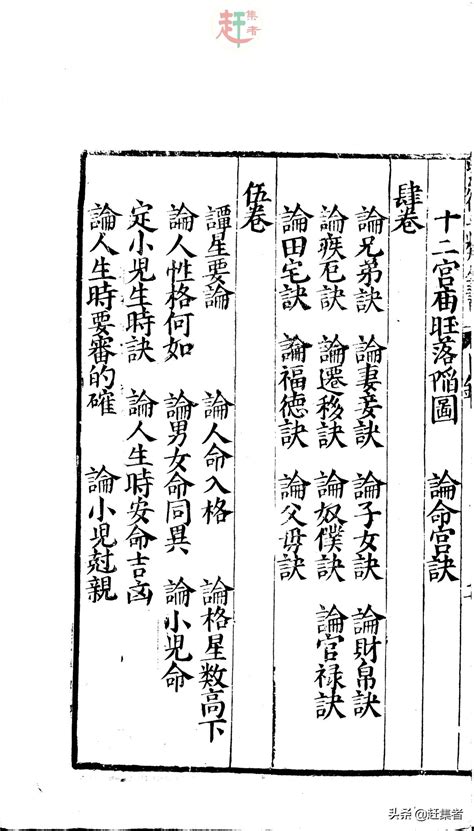 赶集者
十二宫庙旺落陷圖 論命宫訣
肆卷
論兄弟訣 論妻妾訣 論子女訣 論財帛訣
論疾厄訣 論遷移訣 論奴僕訣 論官禄訣
論田宅訣 論福德訣 論父母訣
伍卷
譚星要論 論人命入格 論格星数高下
論人性格何如 論男女命同異 論小児命
定小児生時訣 論人生時安命吉凶
論人生時要審的確 論小児尅親
头条@赶集者